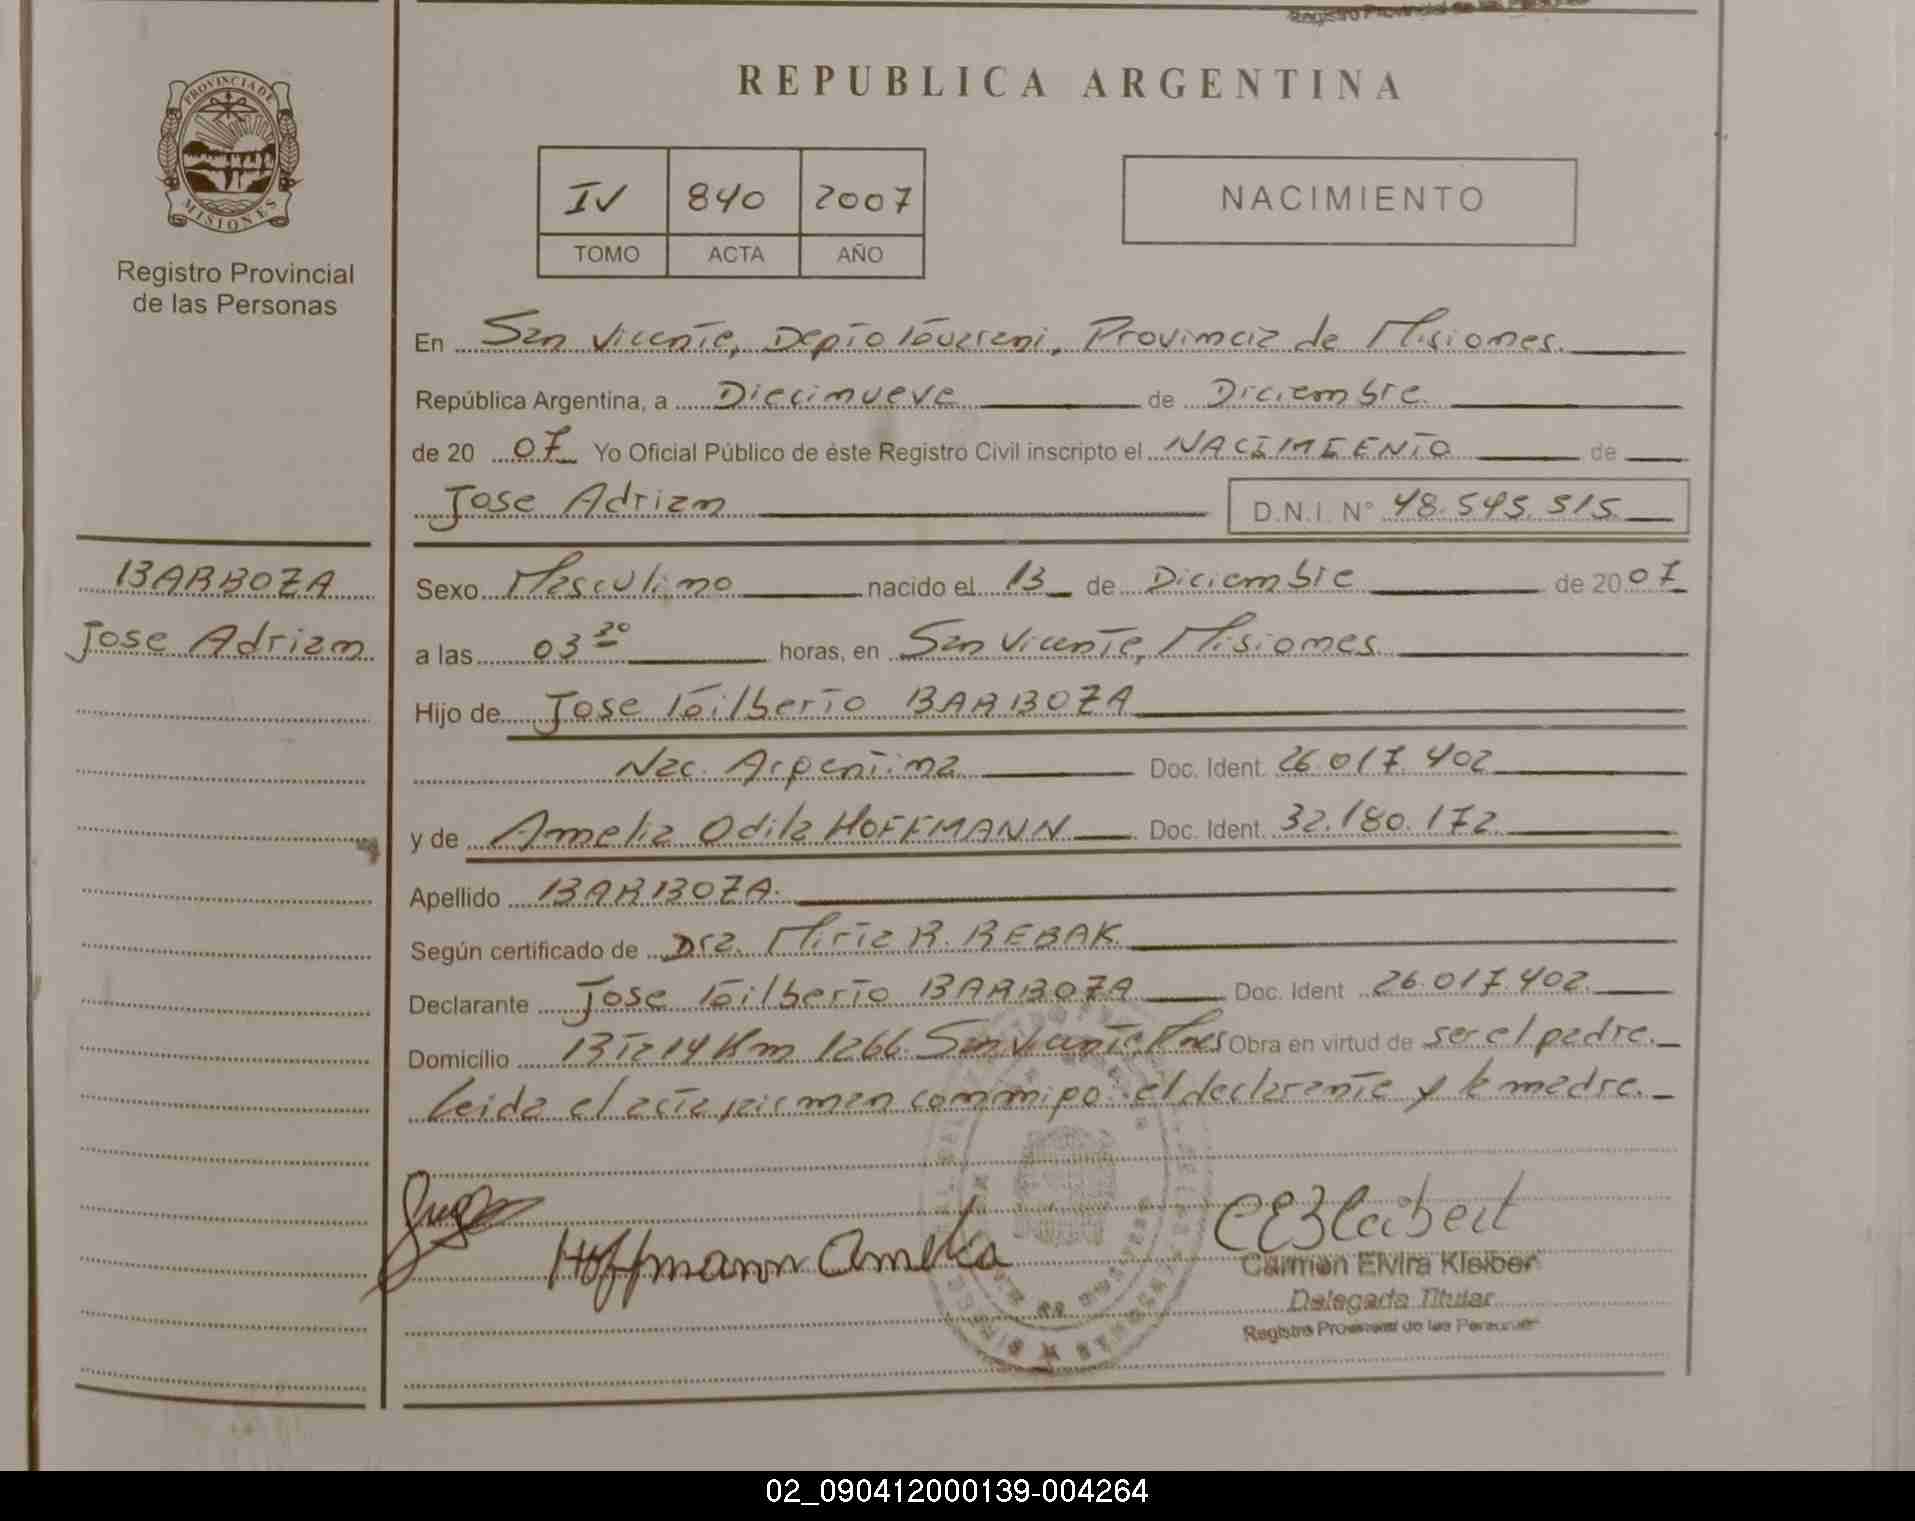 Registro Provincial de las Personas
PROVINCIA DE
MISIONES
Registro Provincial
de las Personas
REPUBLICA ARGENTINA
IV 840 2007
TOMO ACTA AÑO
NACIMIENTO
En San Vicente, Depto Guarani, Provincia de Misiones.
República Argentina, a Diecinueve de Diciembre.
de 20 07 Yo Oficial Público de éste Registro Civil inscripto el NACIMIENTO de
Jose Adrian D.N.I. N° 48.545.515
BARBOZA
Jose Adrian
Sexo Masculino nacido el 13 de Diciembre de 20 07
a las 03 30 horas, en San Vicente, Misiones
Hijo de Jose Gilberto BARBOZA
Nac. Argentina Doc. Ident. 26.017.402
y de Amelia Odila HOFFMANN Doc. Ident. 32.180.172
Apellido BARBOZA.
Según certificado de Dra. Mirta R. REBAK.
Declarante Jose Gilberto BARBOZA Doc. Ident 26.017.402.
Domicilio Km 1266 San Vicente, Mnes Obra en virtud de ser el padre.
Leida el acta, firman conmigo el declarante y la madre.
Hoffmann Amelia
Carmen Elvira Kleiber
Delegada Titular
Registro Provincial de las Personas
02_090412000139-004264